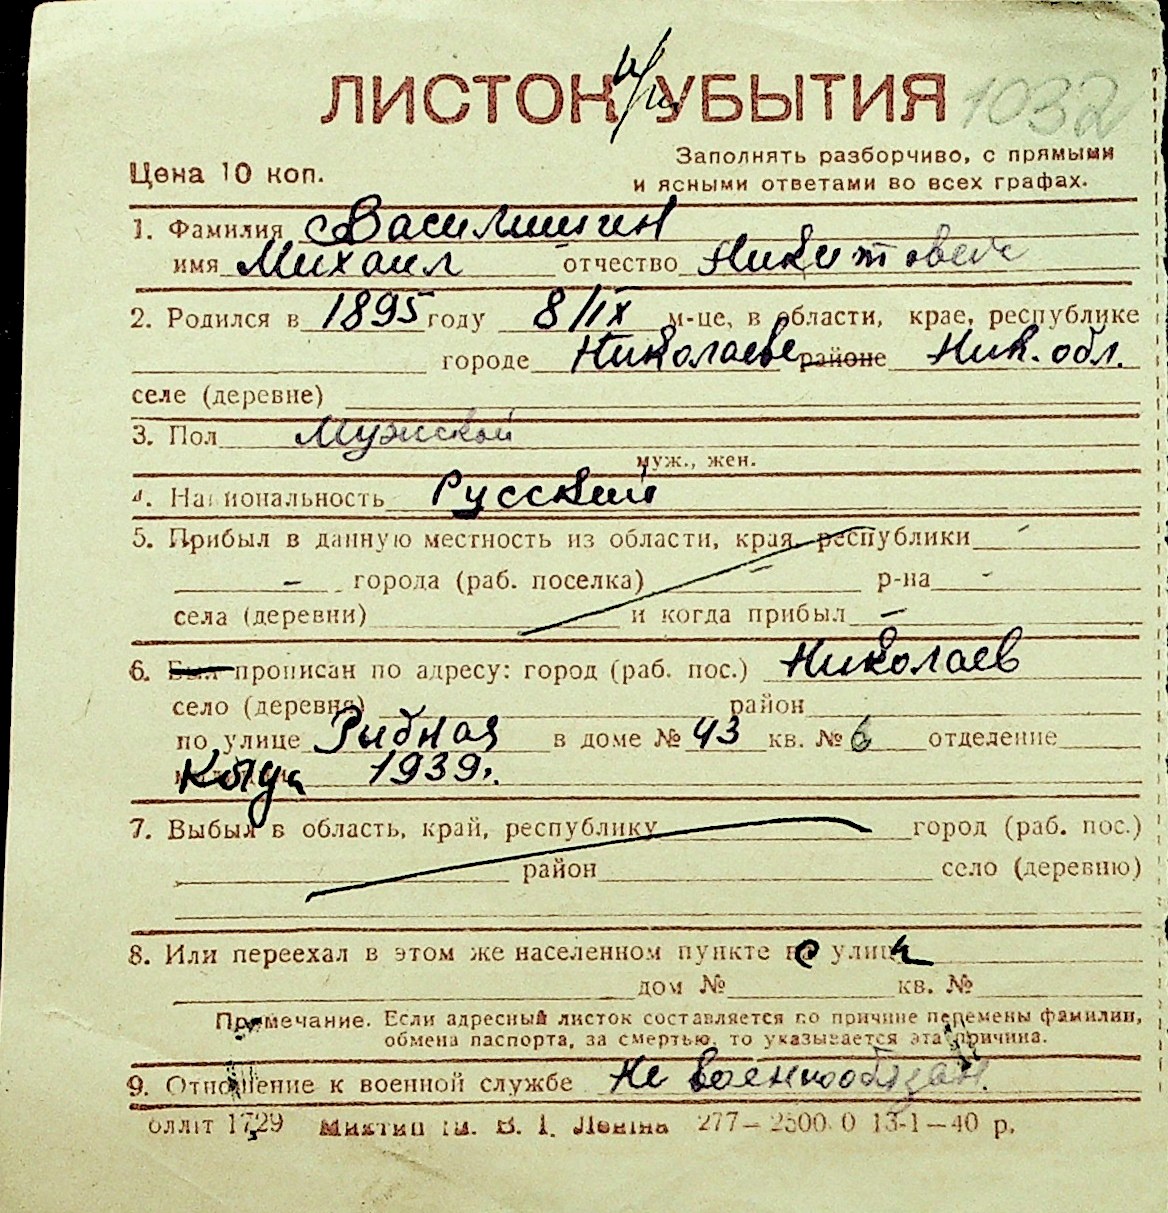 ЛИСТОК УБЫТИЯ 1032
Цена 10 коп.
Заполнять разборчиво, с прямыми
и ясными ответами во всех графах.
1. Фамилия Василишин
имя Михаил отчество Никитович
2. Родился в 1895 году 8/IX м-це, в области, крае, республике
городе Николаеве районе Ник. обл.
селе (деревне)
3. Пол Мужской
муж., жен.
4. Национальность Русский
5. Прибыл в данную местность из области, края, республики
города (раб. поселка) р-на
села (деревни) и когда прибыл
6. Был прописан по адресу: город (раб. пос.) Николаев
село (деревня) район
по улице Рыбная в доме № 43 кв. № 6 отделение
Когда 1939г.
7. Выбыл в область, край, республику город (раб. пос.)
район село (деревню)
8. Или переехал в этом же населенном пункте с улицы
дом № кв. №
Примечание. Если адресный листок составляется по причине перемены фамилии,
обмена паспорта, за смертью, то указывается эта причина.
9. Отношение к военной службе Не военнообязан.
оллiт 1729 Миктип iм. В. I. Леніна 277—2500.0 13-1—40 р.